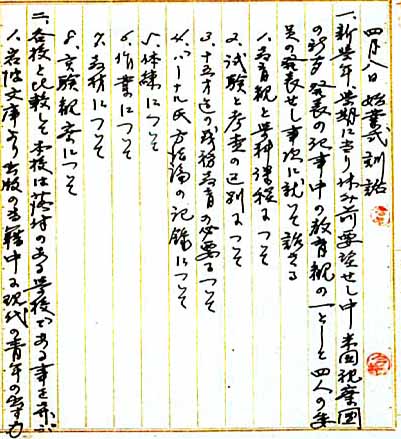 四月八日 始業式訓話
一、新学年、学期に当り休み前要望せし中 米国視察団
の発表の記事中の教育観の一として四人の
の発表せし事項に就いて話さる
1、教育観と学科課程について
2、試験と考査の区別について
3、十五才迄の義務教育の必要について
4、バーナル氏方法論の記録について
5、体練について
6、作業について
7、教材について
8、実験観察について
二、各校と比較して本校は落付のある学校である事を
1、岩波文庫より出版の書籍中に現代の青年の